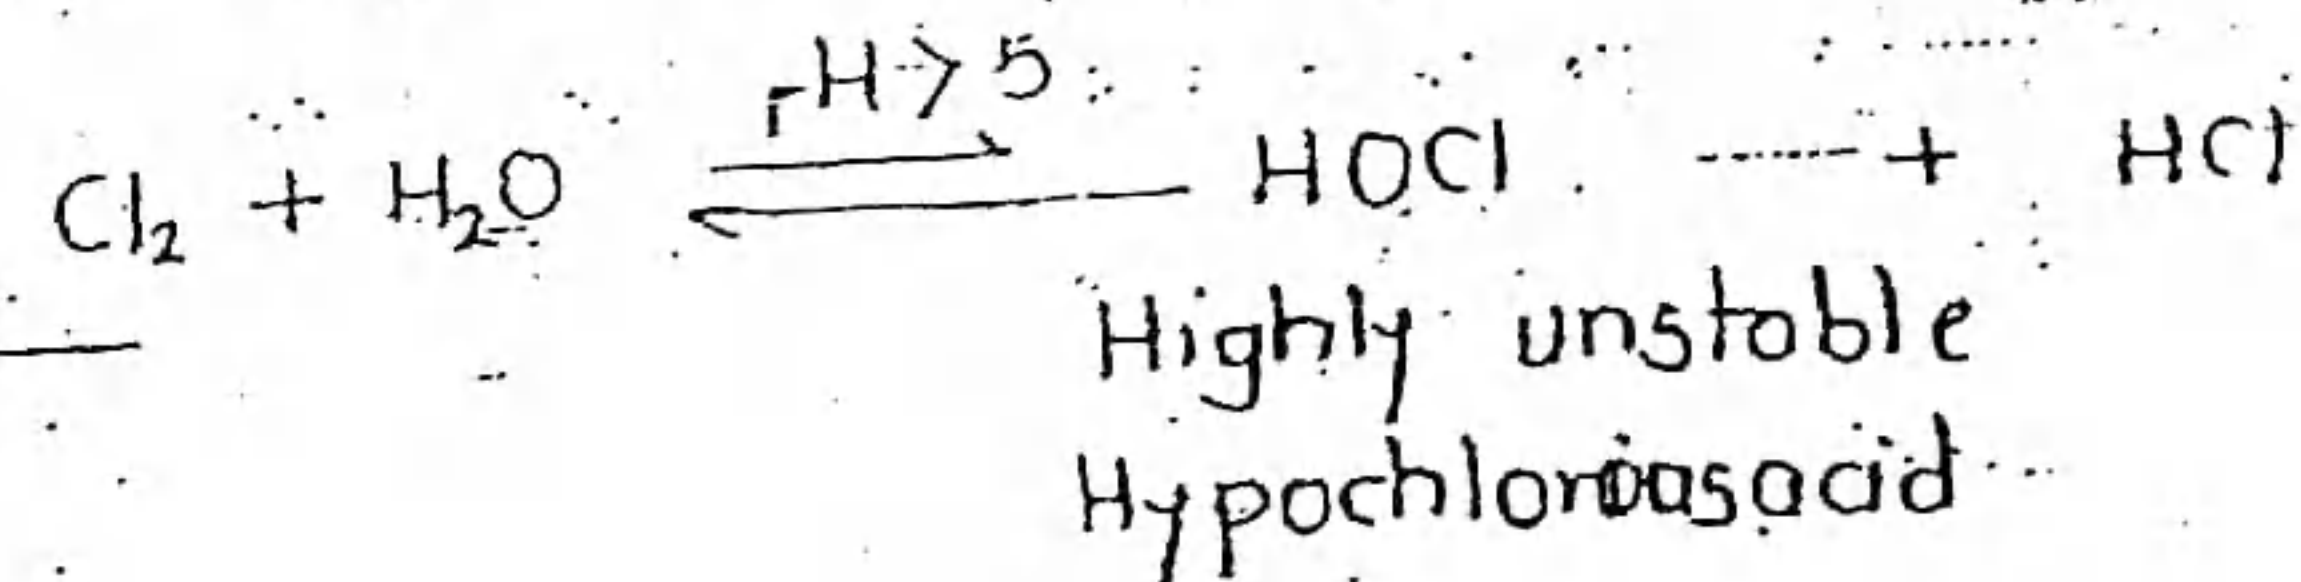 pH > 5
Cl₂ + H₂O ⇌ HOCl + HCl
Highly unstable
Hypochlorous acid